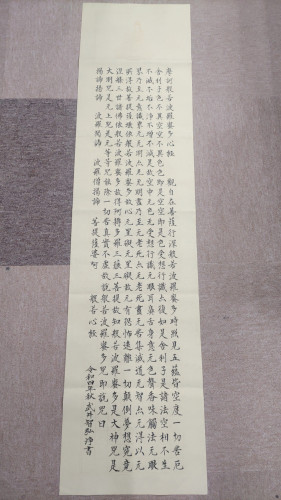 摩訶般若波羅蜜多心経　観自在菩薩行深般若波羅蜜多時照見五蘊皆空度一切苦厄
舎利子色不異空空不異色色即是空空即是色受想行識亦復如是舎利子是諸法空相不生
不滅不垢不浄不増不減是故空中无色无受想行識无眼耳鼻舌身意无色聲香味觸法无眼
界乃至无意識界无无明亦无无明盡乃至无老死亦无老死盡无苦集滅道无智亦无得以无
所得故菩提薩埵依般若波羅蜜多故心无罣礙无罣礙故无有恐怖遠離一切顛倒夢想究竟
涅槃三世諸佛依般若波羅蜜多故得阿耨多羅三藐三菩提故知般若波羅蜜多是大神咒是
大明咒是无上咒是无等等咒能除一切苦真實不虚故説般若波羅蜜多咒即説咒曰
揭諦揭諦　波羅揭諦　波羅僧揭諦　菩提薩婆訶　般若心経
令和四年秋武井智弘浄書